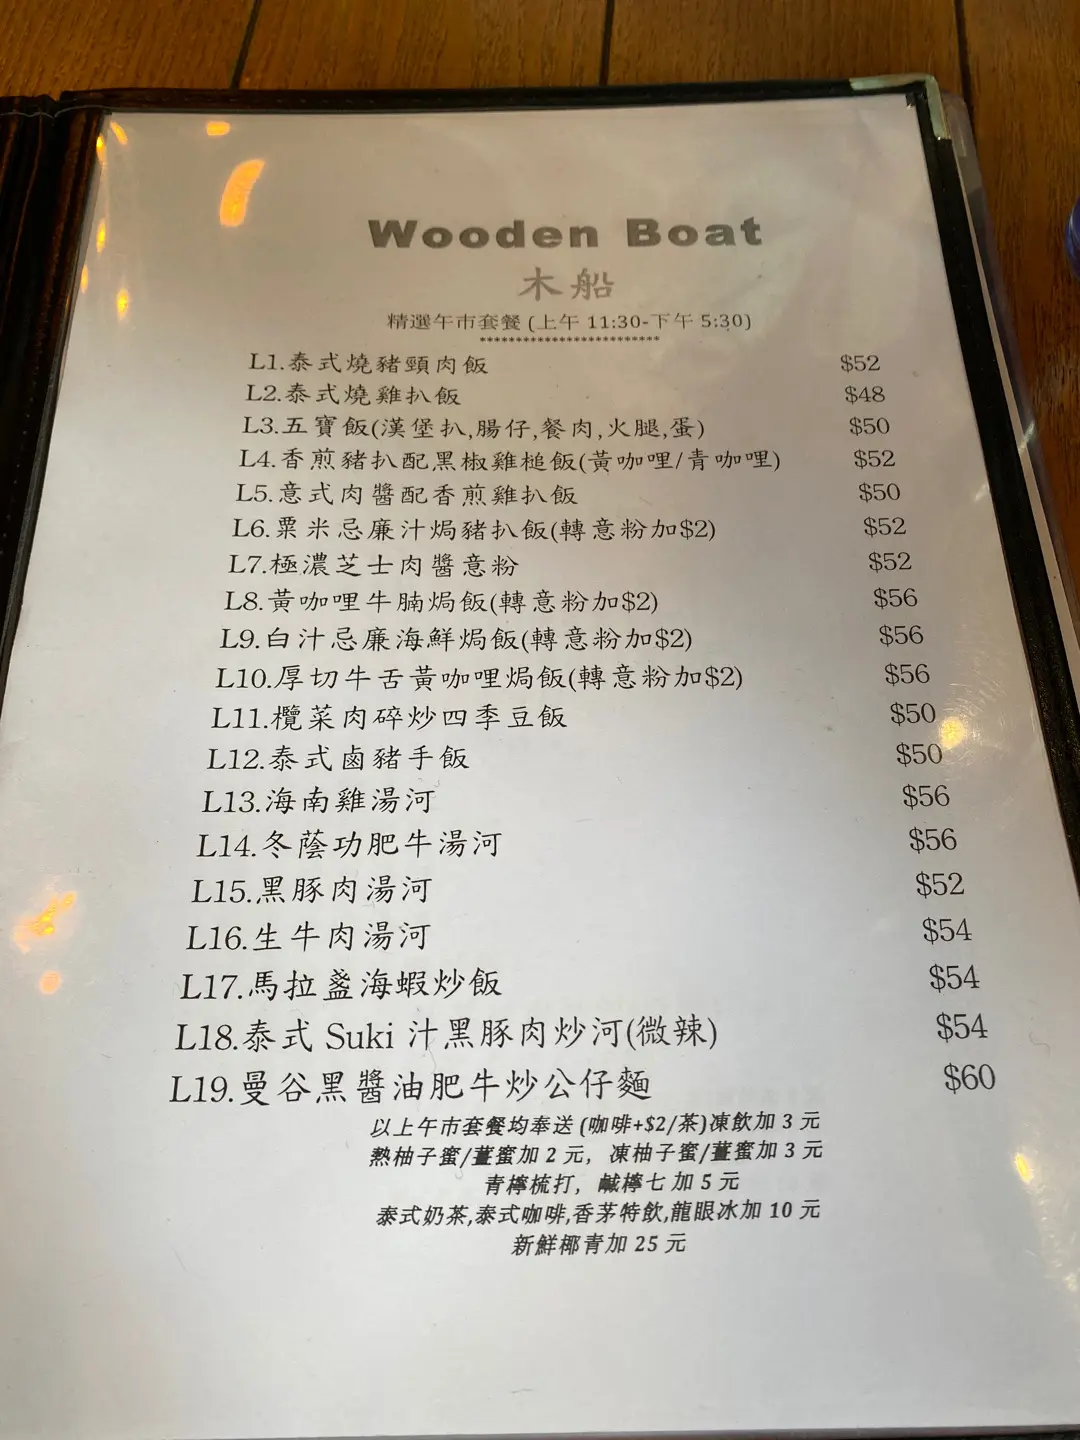 Wooden Boat
木船
精選午市套餐 (上午 11:30-下午 5:30)
*************************
L1.泰式燒豬頸肉飯 $52
L2.泰式燒雞扒飯 $48
L3.五寶飯(漢堡扒,腸仔,餐肉,火腿,蛋) $50
L4.香煎豬扒配黑椒雞槌飯(黃咖哩/青咖哩) $52
L5.意式肉醬配香煎雞扒飯 $50
L6.粟米忌廉汁焗豬扒飯(轉意粉加$2) $52
L7.極濃芝士肉醬意粉 $52
L8.黃咖哩牛腩焗飯(轉意粉加$2) $56
L9.白汁忌廉海鮮焗飯(轉意粉加$2) $56
L10.厚切牛舌黃咖哩焗飯(轉意粉加$2) $56
L11.欖菜肉碎炒四季豆飯 $50
L12.泰式鹵豬手飯 $50
L13.海南雞湯河 $56
L14.冬蔭功肥牛湯河 $56
L15.黑豚肉湯河 $52
L16.生牛肉湯河 $54
L17.馬拉盞海蝦炒飯 $54
L18.泰式 Suki 汁黑豚肉炒河(微辣) $54
L19.曼谷黑醬油肥牛炒公仔麵 $60
以上午市套餐均奉送 (咖啡+$2/茶)凍飲加 3 元
熱柚子蜜/薑蜜加 2 元, 凍柚子蜜/薑蜜加 3 元
青檸梳打, 鹹檸七 加 5 元
泰式奶茶,泰式咖啡,香茅特飲,龍眼冰加 10 元
新鮮椰青加 25 元